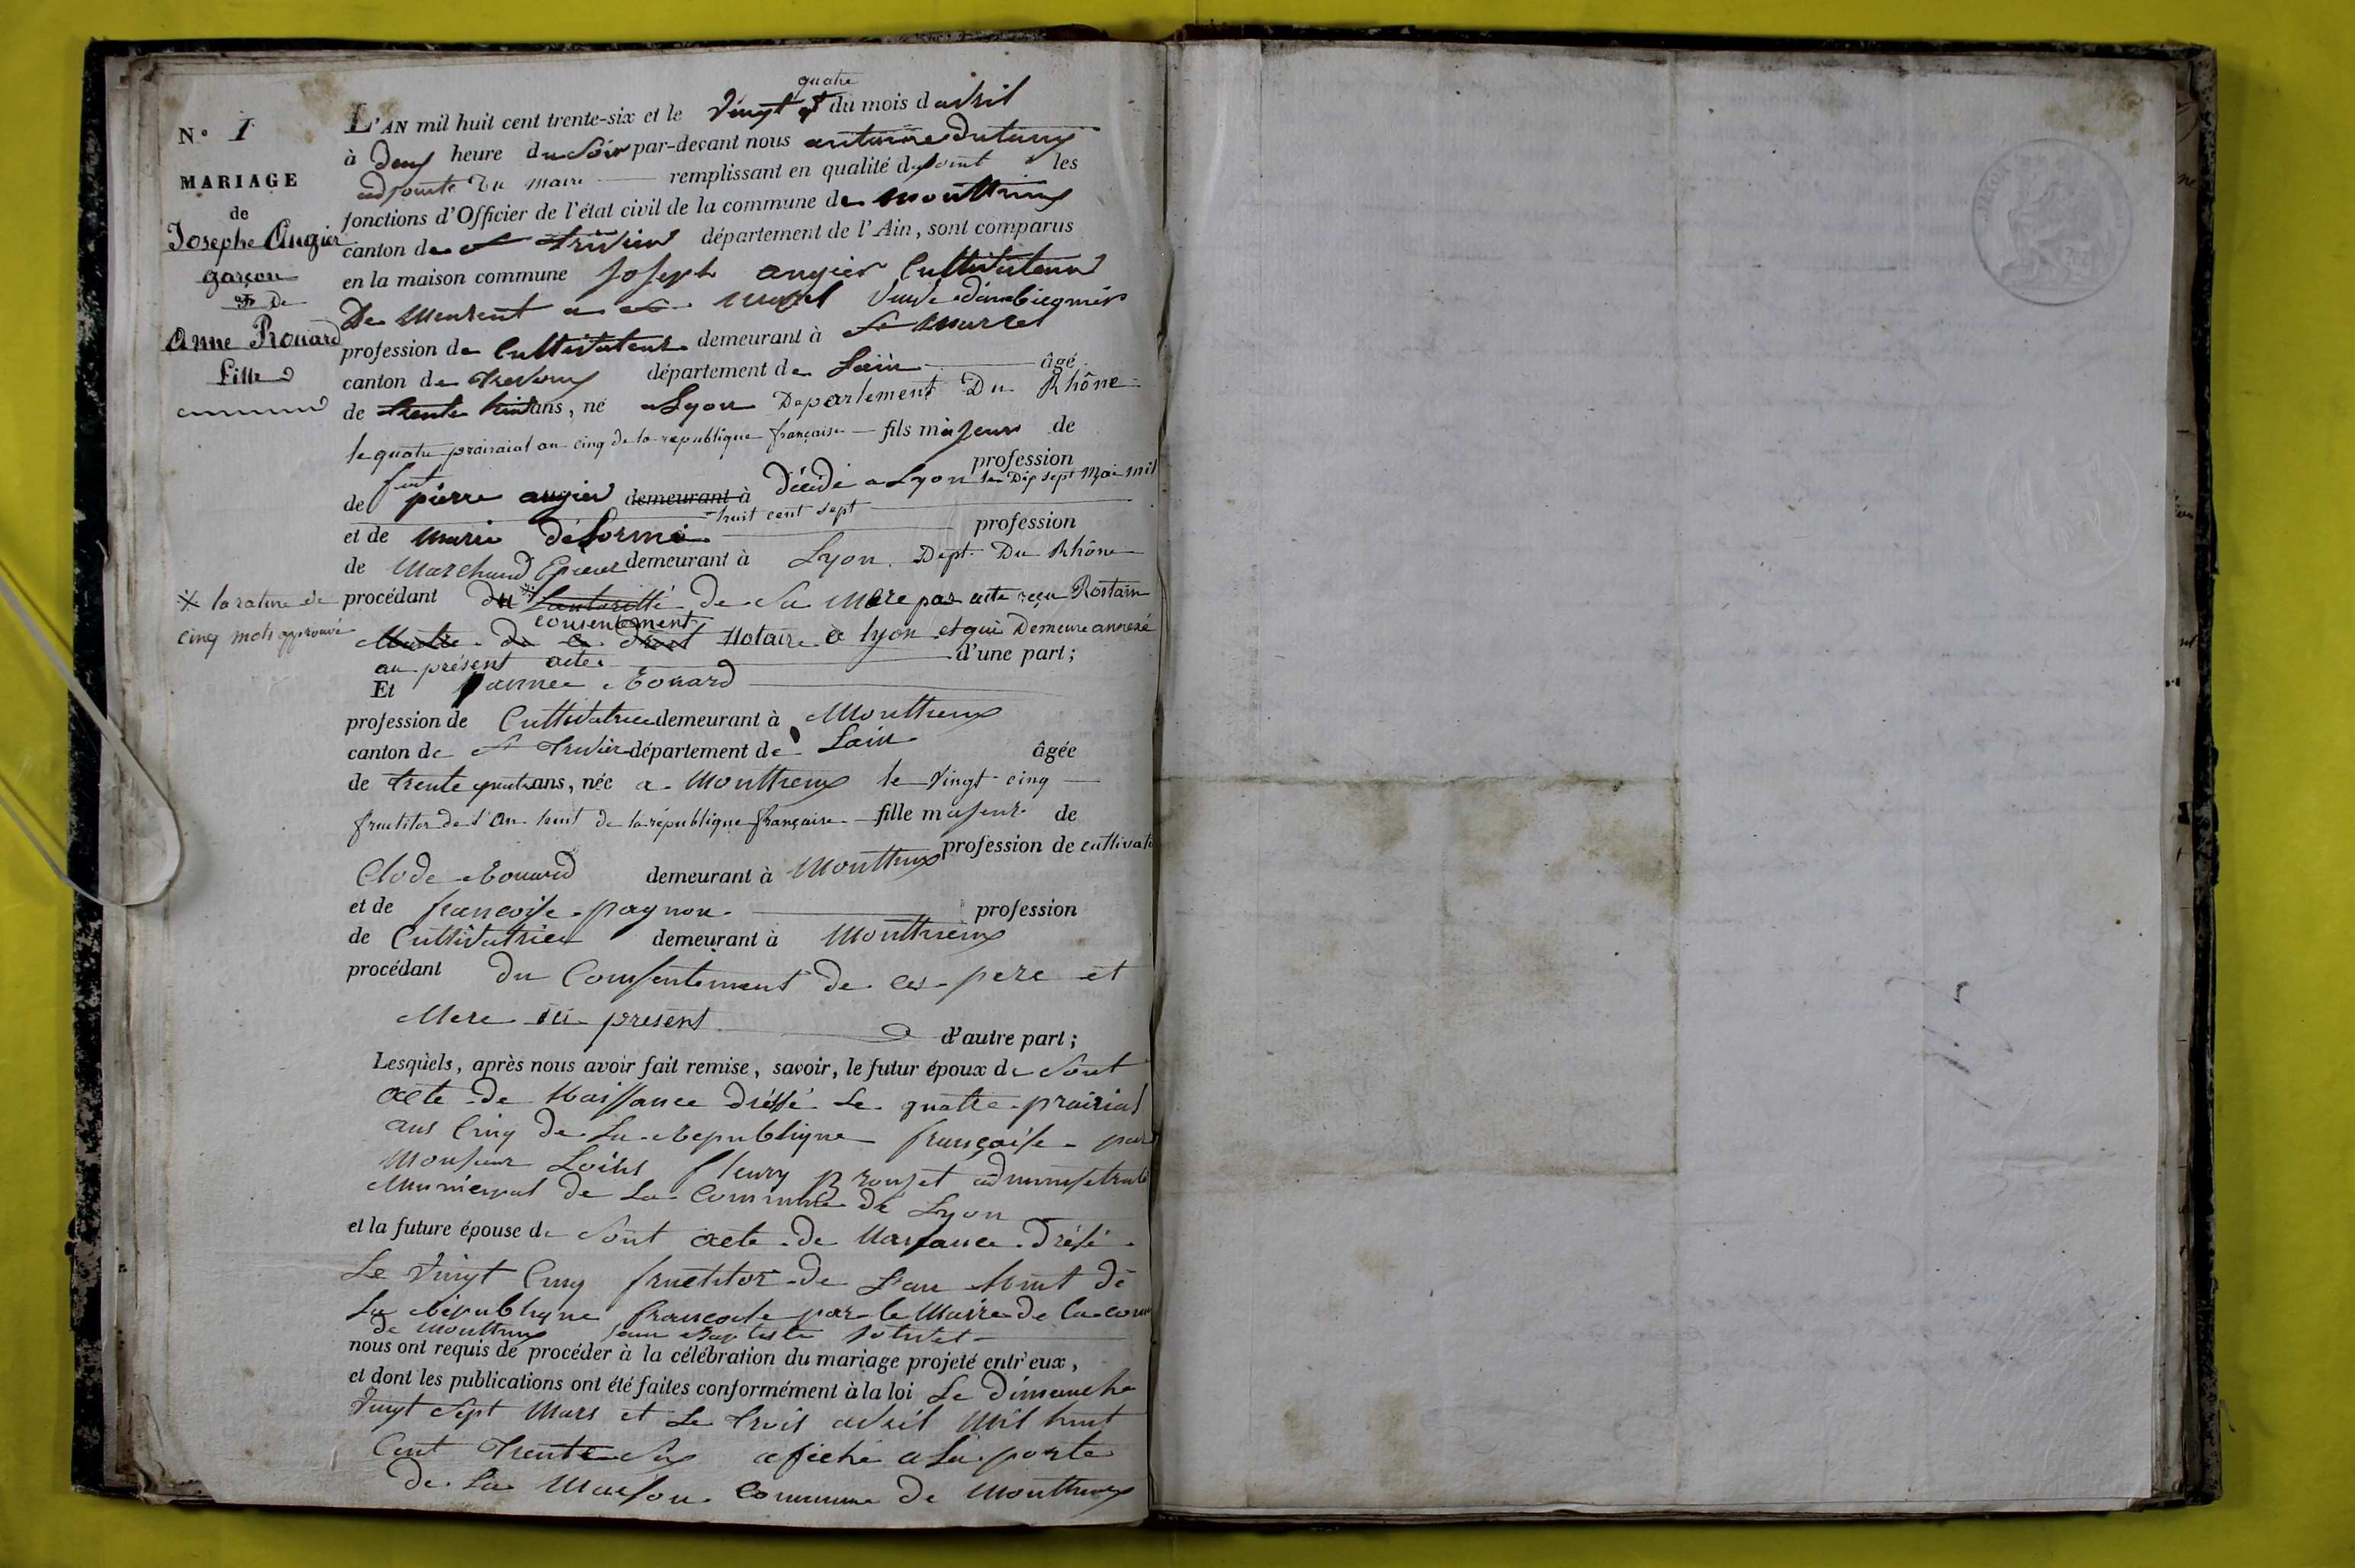 N.° 1
MARIAGE
de
Josephe Augier
garçon
& De
Anne Rouard
fille
quatre
L'AN mil huit cent trente-six et le vingt du mois d avril
à deux heure du Soir par-devant nous antoine dutang
adjoint Du maire remplissant en qualité d les
fonctions d'Officier de l'état civil de la commune de mouttrieux
canton de St trivier département de l'Ain, sont comparus
en la maison commune Joseph augier Cultivateur
De Meurent a
profession de Cultivateur demeurant à St Marcel
canton de trevoux département de Lain âgé
de trente huit ans, né a Lyon Departement Du Rhône
le quatre prairaial an cinq de la république française fils majeur de
profession
de feut pierre augier demeurant à Décédé a Lyon le Dix sept Mai mil
huit cent sept
et de Marie délorme profession
de Marchand Epicier demeurant à Lyon. Dept. Du Rhône
procédant du Lautoritté de Sa Mere par acte reçu Rostain
consentement
Notaire à lyon et qui Demeure annexé
au présent acte d'une part;
※ la rature de
cinq mots approuvé
Et annee Rouard
profession de Cultivatrice demeurant à Mouttrieux
canton de St Trivier département de Lain âgée
de trente quatre ans, née a Mouttrieux le vingt-cinq
fructitor de l'an huit de la république française fille majeure de
profession de cultivat
Clode Rouard demeurant à Mouttrieux
et de francoise pagnon profession
de Cultivatrice demeurant à Mouttrieux
procédant du Consentement de ces pere et
Mere ici present d'autre part;
Lesquels, après nous avoir fait remise, savoir, le futur époux de Sont
acte de Naissance dréssé Le quatre prairial
ans Cinq de La republique française par
Monsieur Louis fleury
Municipal de La Commune de Lyon
et la future épouse de Sont acte de Naissance drésé
Le vingt Cinq fructitor de L'an huit de
La république francaise par le Maire de la com
de Mouttrieux Jean Baptiste
nous ont requis de procéder à la célébration du mariage projeté entr'eux,
et dont les publications ont été faites conformément à la loi Le dimanche
vingt Sept Mars et Le trois avril Mil huit
Cent trente Six afiché a La porte
de La Maison Commune de Mouttrieux